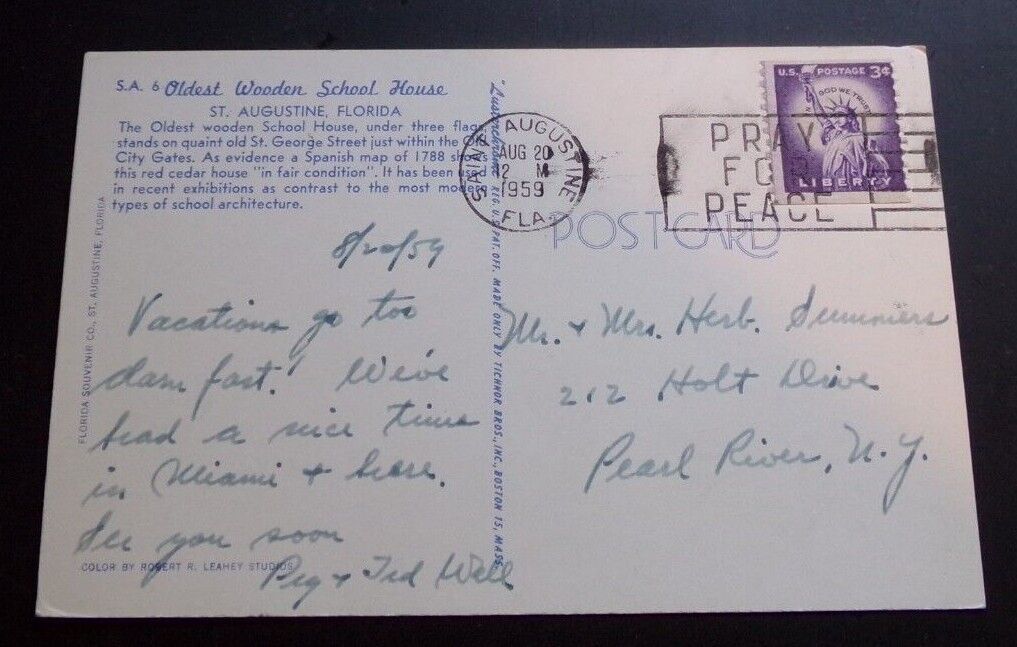 S.A. 6 Oldest Wooden School House
ST. AUGUSTINE, FLORIDA
The Oldest wooden School House, under three flags
stands on quaint old St. George Street just within the
City Gates. As evidence a Spanish map of 1788 shows
this red cedar house "in fair condition". It has been used
in recent exhibitions as contrast to the most modern
types of school architecture.
8/20/59
Vacations go too
dam fast! We've
had a nice time
in Miami + here.
See you soon
Peg + Ted Well
COLOR BY ROBERT R. LEAHEY STUDIOS
FLORIDA SOUVENIR CO., ST. AUGUSTINE, FLORIDA
"Lusterchrome" REG. U.S. PAT. OFF. MADE ONLY BY TICHNOR BROS., INC., BOSTON 15, MASS.
SAINT AUGUSTINE
AUG 20
2 M
1959
FLA.
PRAY
FOR
PEACE
U.S. POSTAGE 3¢
IN GOD WE TRUST
LIBERTY
POST CARD
Mr. + Mrs. Herb. Summers
212 Holt Drive
Pearl River, N.Y.